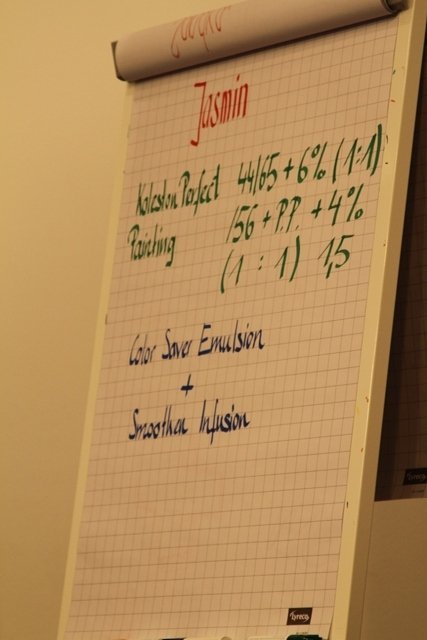 Jasmin
Koleston Perfect 44/65 + 6% (1:1)
Painting /56 + P.P. + 4%
(1 : 1) 1,5
Color Saver Emulsion
+
Smoothen Infusion
Lyreco